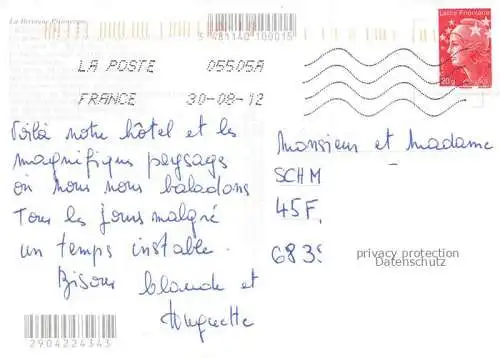 La Bresse
3 481140 100015
Lettre Prioritaire
20g
LA POSTE 05505A
FRANCE 30-08-12
Voilà notre hôtel et les
magnifiques paysages
où nous nous baladons
Tous les jours malgré
un temps instable.
Bisous Claude et
Huguette
Monsieur et Madame
SCHM
45F.
683
privacy protection
Datenschutz
2904224343